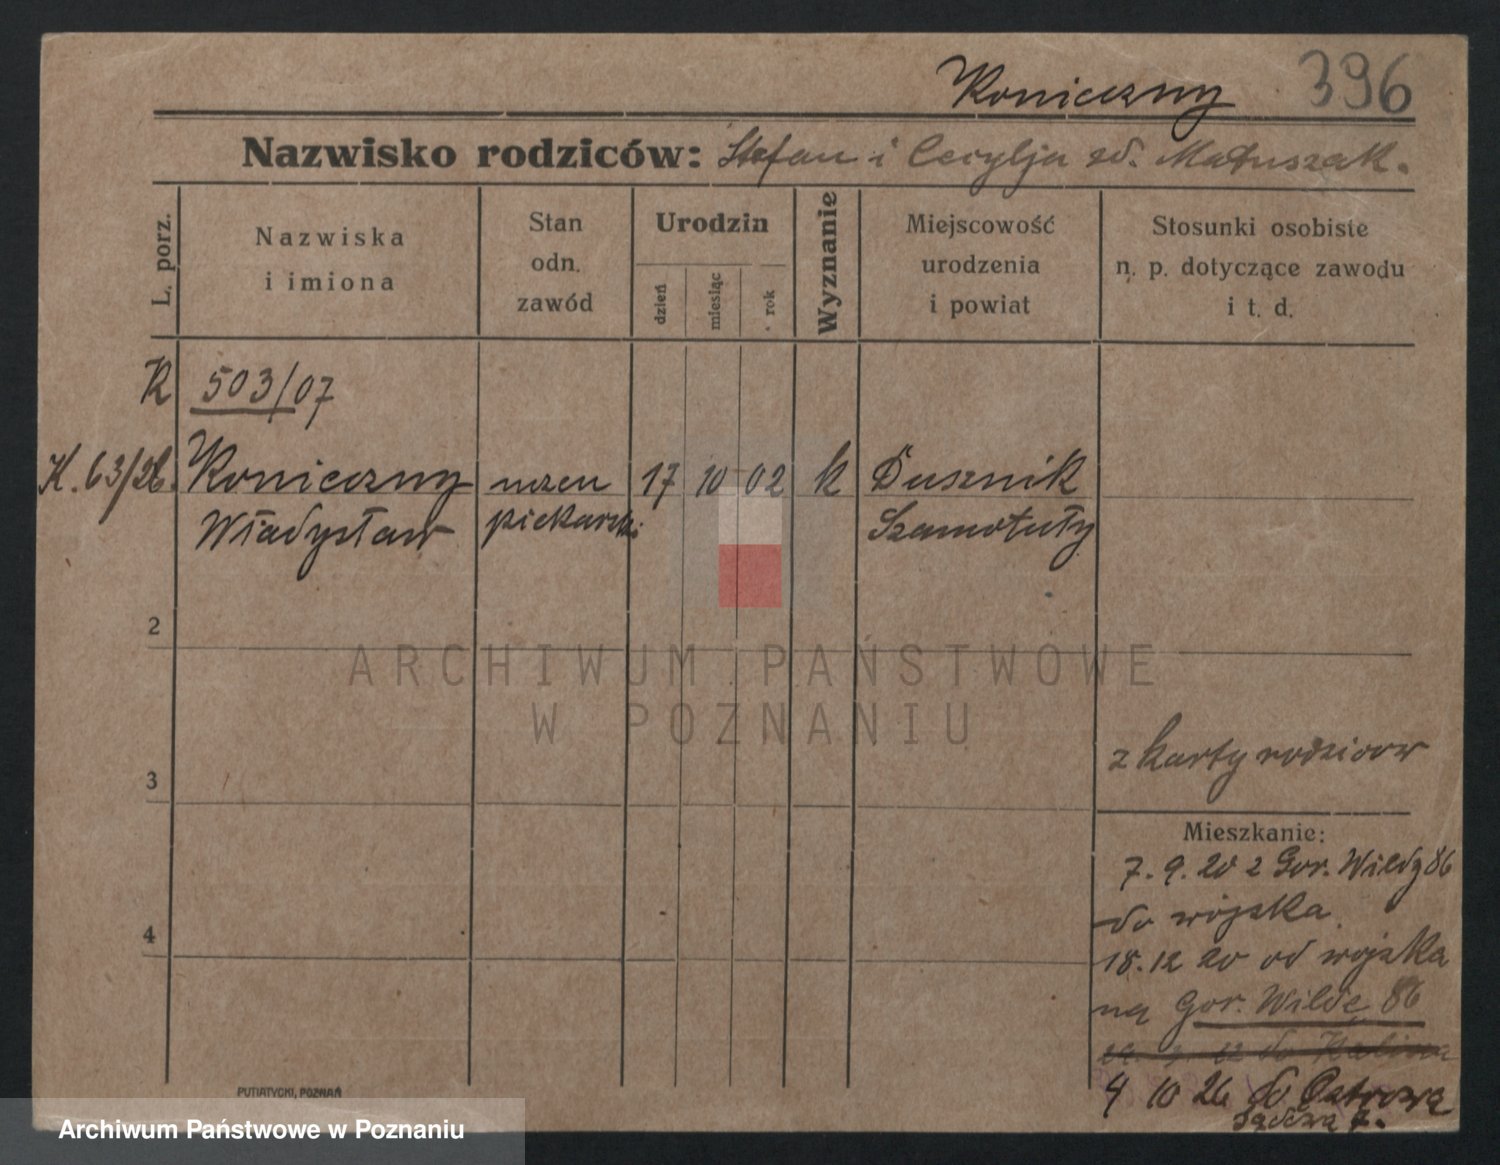 Konieczny 396
Nazwisko rodziców: Stefan i Cecylja zd. Matuszak.
L. porz.
Nazwiska
i imiona
Stan
odn.
zawód
Urodzin
dzień
miesiąc
rok
Wyznanie
Miejscowość
urodzenia
i powiat
Stosunki osobiste
n. p. dotyczące zawodu
i t. d.
R 503/07
K. 63/26. Konieczny uczen 17 10 02 k Dusznik
Władysław piekarski Szamotuły
2
ARCHIWUM PAŃSTWOWE
W POZNANIU
z karty rodzicow
3
Mieszkanie:
7. 9. 20 z Gor. Wildy 86
do wojska
4
18. 12 20 od wojska
na Gor. Wildę 86
do
4 10 26 do Ostrowa
7.
PUTIATYCKI, POZNAŃ
Archiwum Państwowe w Poznaniu